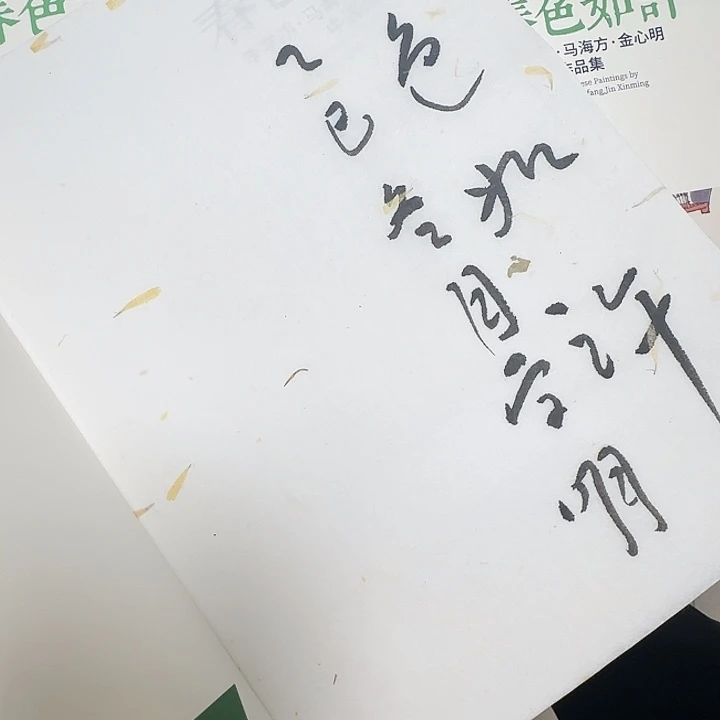 春色
春色如许
·马海方·金心明
作品集
ese Paintings by
fang,Jin Xinming
色如许
乙巳冬月
明